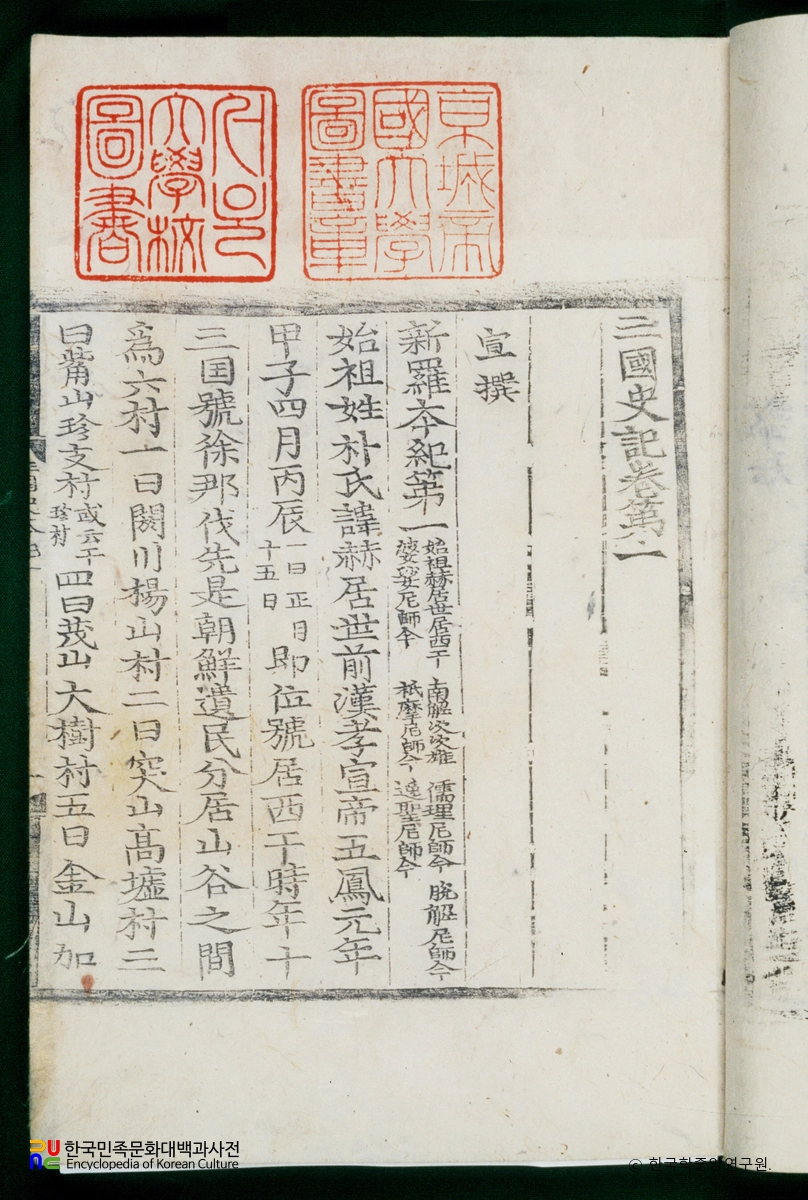 京城帝
國大學
圖書章
서울
大學校
圖書
三國史記卷第一
宣撰
新羅本紀第一 始祖赫居世居西干 南解次次雄 儒理尼師今 脫解尼師今 婆娑尼師今 祇摩尼師今 逸聖尼師今
始祖姓朴氏諱赫居世前漢孝宣帝五鳳元年
甲子四月丙辰 一曰正月十五日 卽位號居西干時年十
三国號徐那伐先是朝鮮遺民分居山谷之間
爲六村一曰閼川楊山村二曰突山高墟村三
曰觜山珍支村 或云干珍村 四曰茂山大樹村五曰金山加
한국민족문화대백과사전
Encyclopedia of Korean Culture
© 한국학중앙연구원.